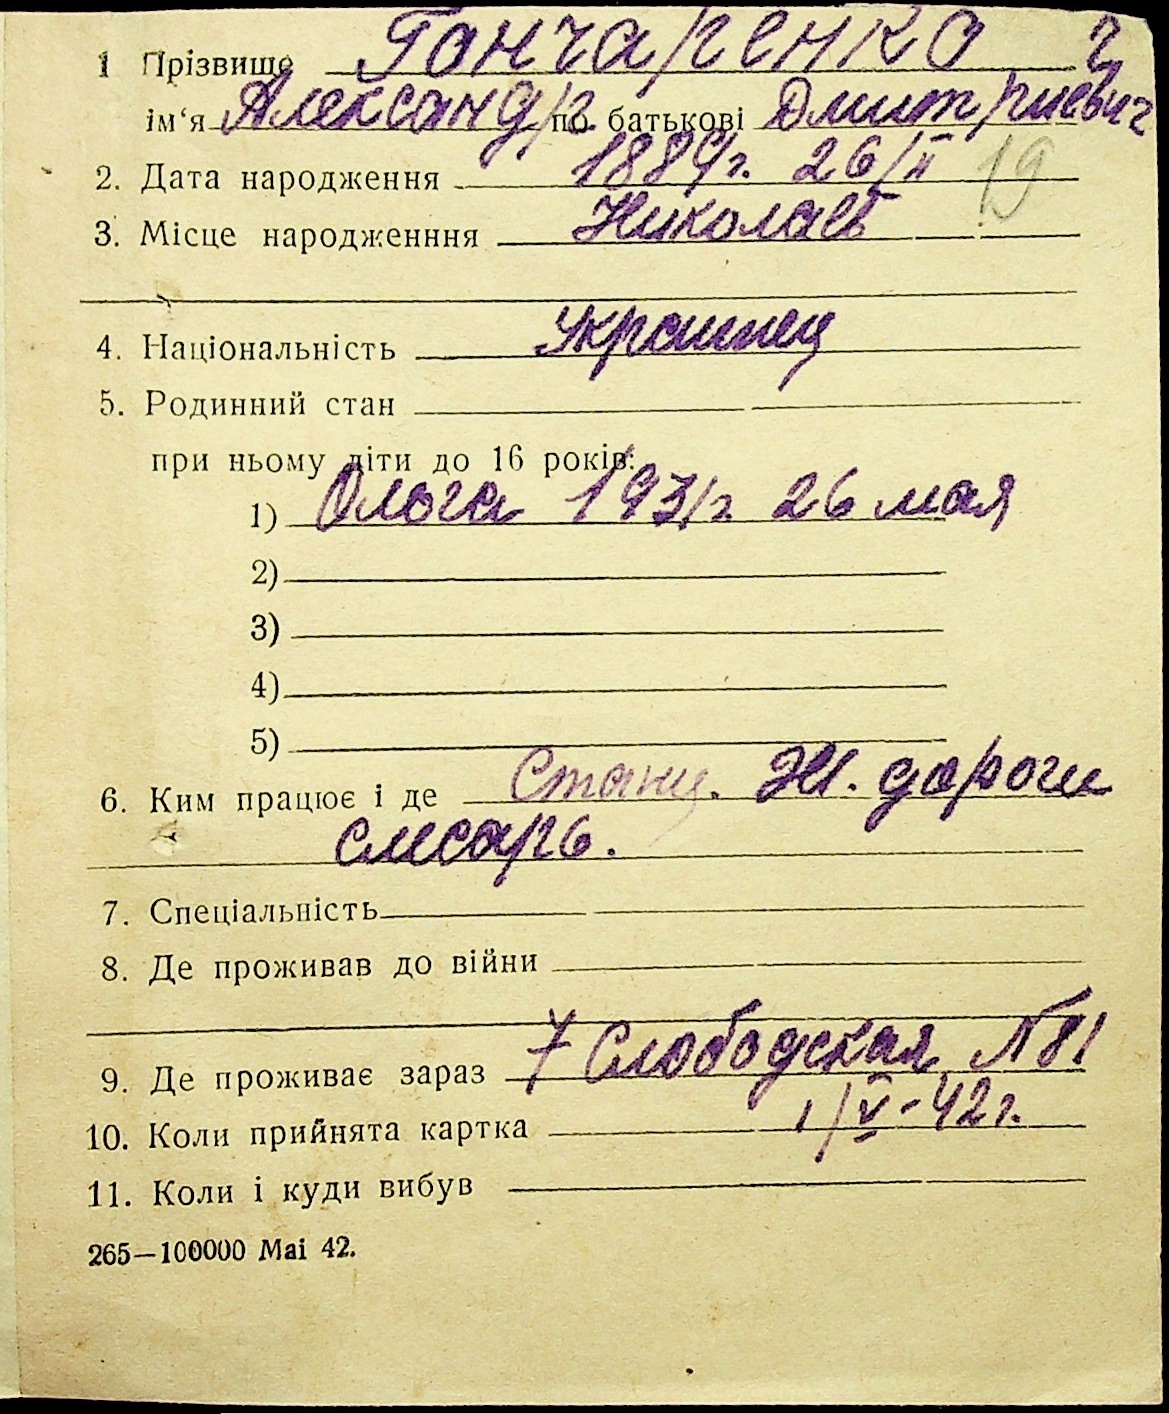 1 Прізвище Гончаренко
ім‘я Александр по батькові Дмитриевич
2. Дата народження 1889г. 26/II 19
3. Місце народженння Николаев
4. Національність Украинец
5. Родинний стан
при ньому діти до 16 років:
1) Ольга 1931г. 26 мая
2)
3)
4)
5)
6. Ким працює і де Станц. Жел. дороги
слесарь.
7. Спеціальність
8. Де проживав до війни
9. Де проживає зараз 7 Слободская N81
10. Коли прийнята картка 1/V-42г.
11. Коли і куди вибув
265—100000 Mai 42.